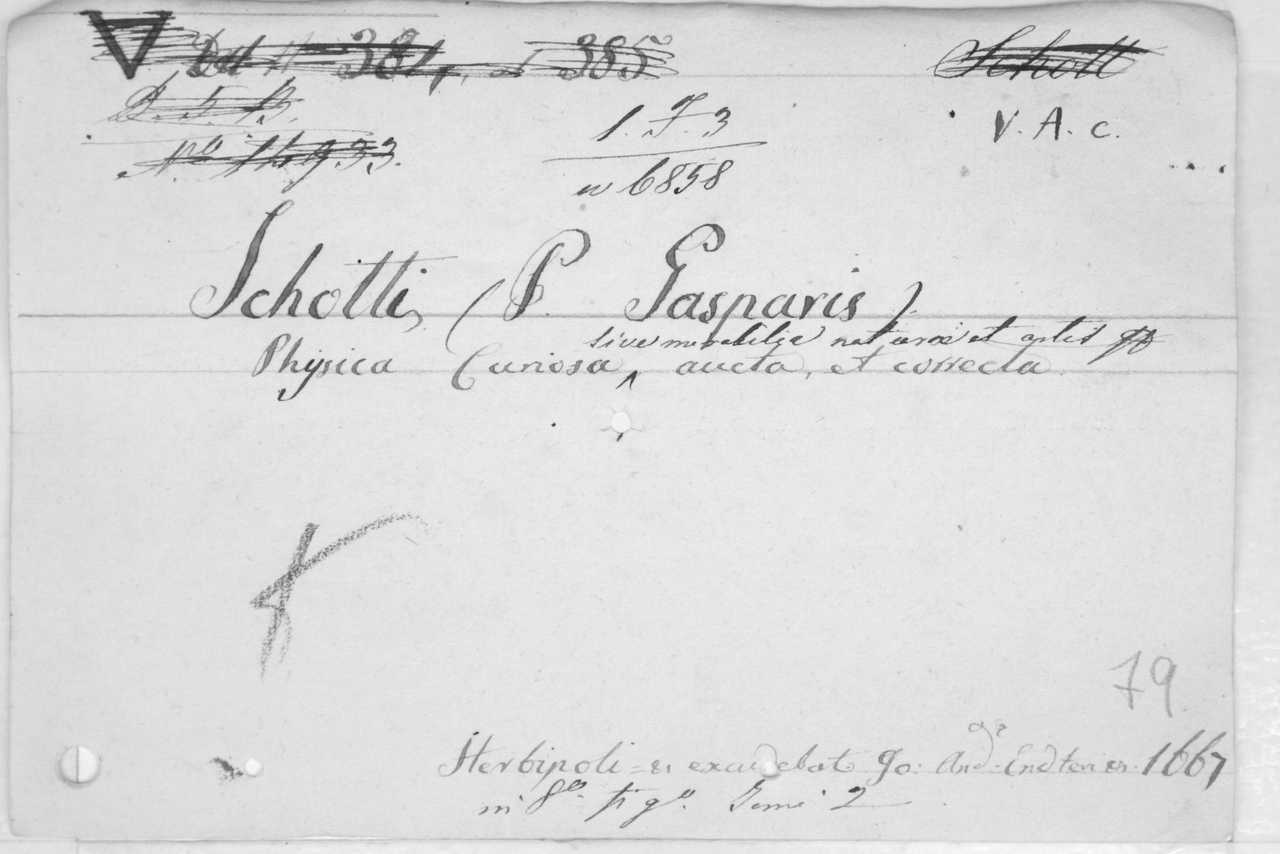 384, 385 Schott
D. 5. B.
1. F. 3 V. A. c.
n 6858
Schotti, (P. Gasparis).
sive mirabilia naturae et artis
Physica Curiosa, aucta, et correcta.
79
Herbipoli = excudebat Jo: And. Endter 1667
in 8º. figº. Tomi 2